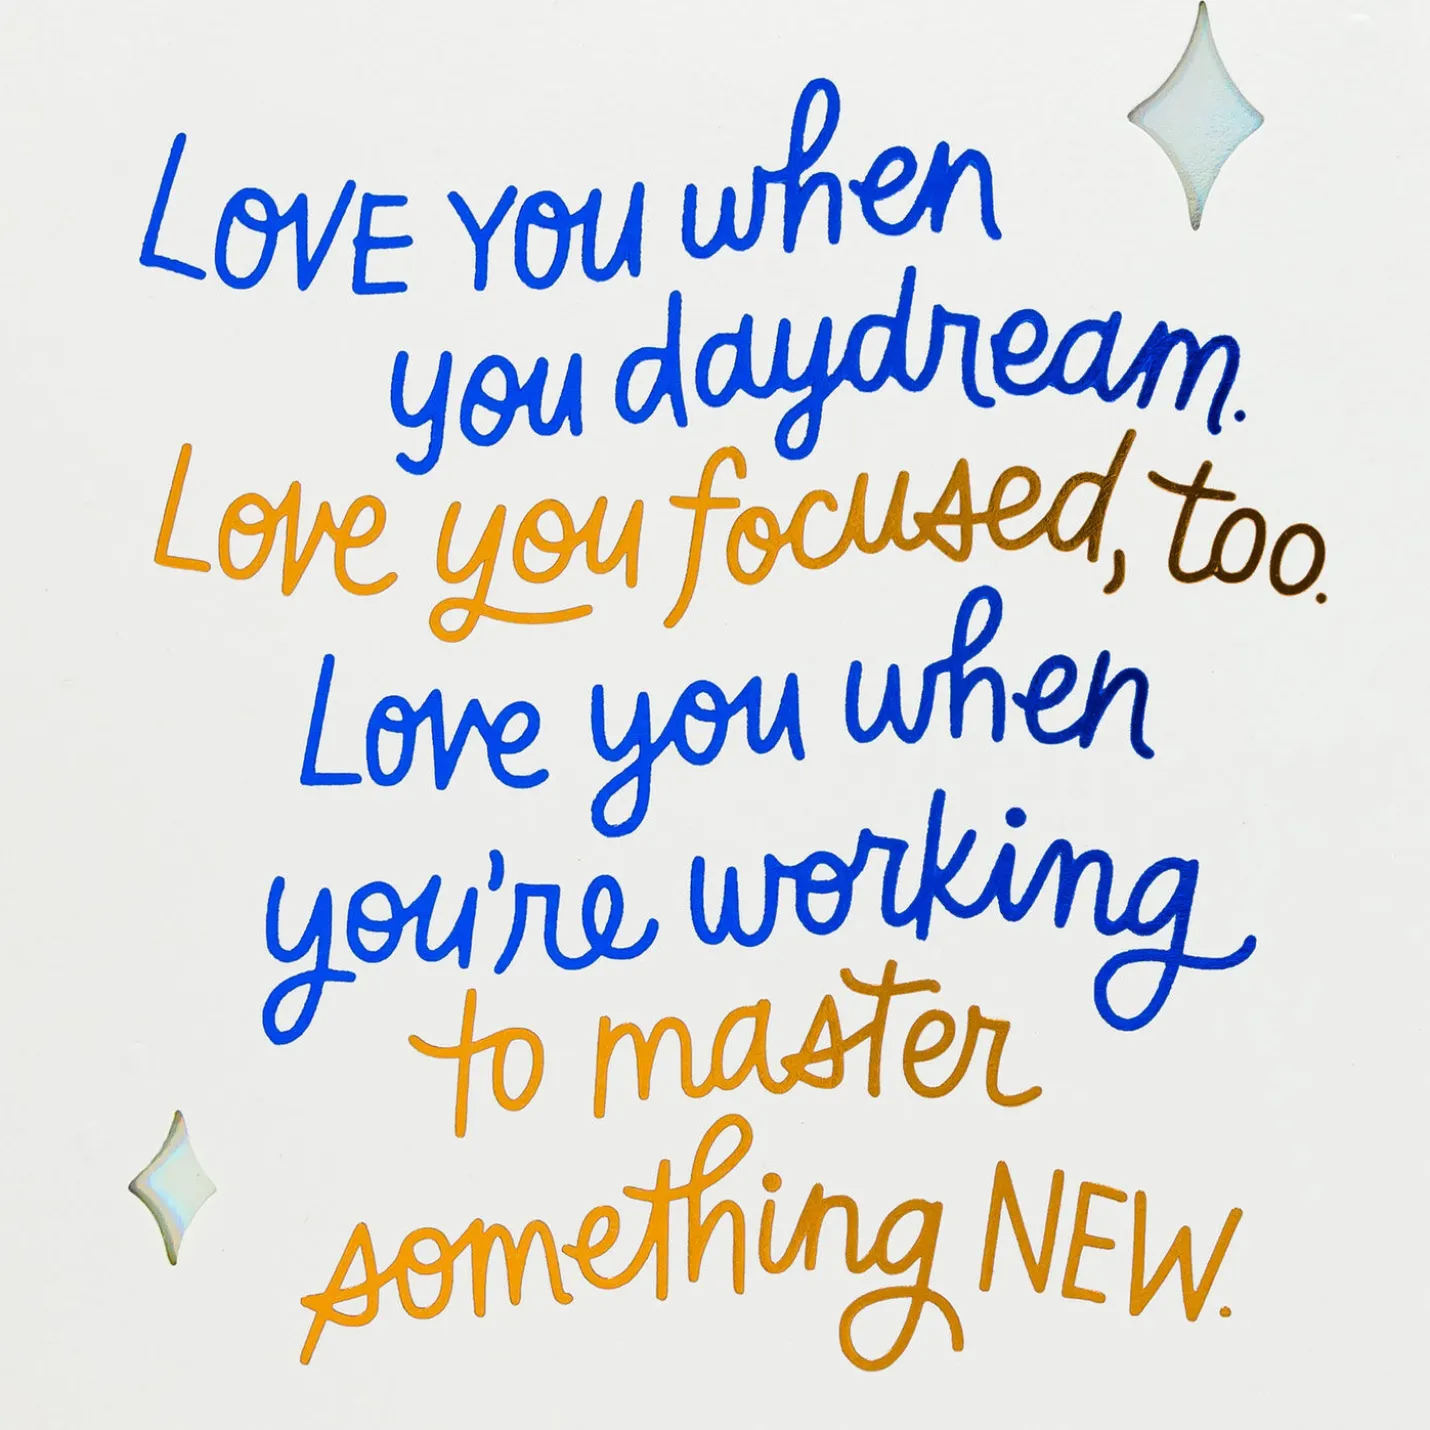 LOVE YOU when
you daydream.
Love you focused, too.
Love you when
you're working
to master
something NEW.